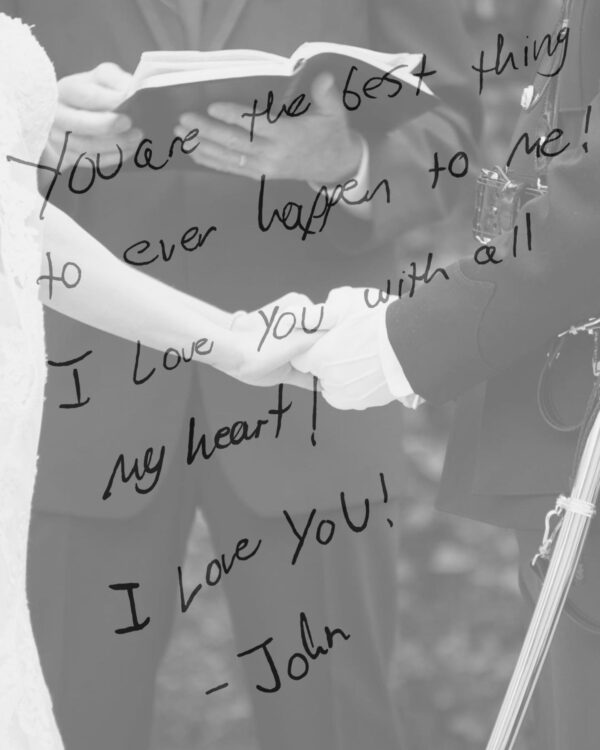 You are the best thing
to ever happen to me!
I Love you with all
my heart!
I Love YOU!
- John